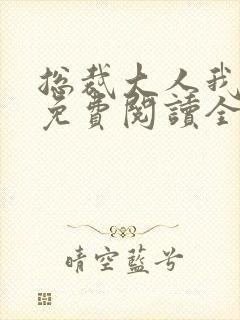 總裁大人我
免費閱讀全
晴空藍兮